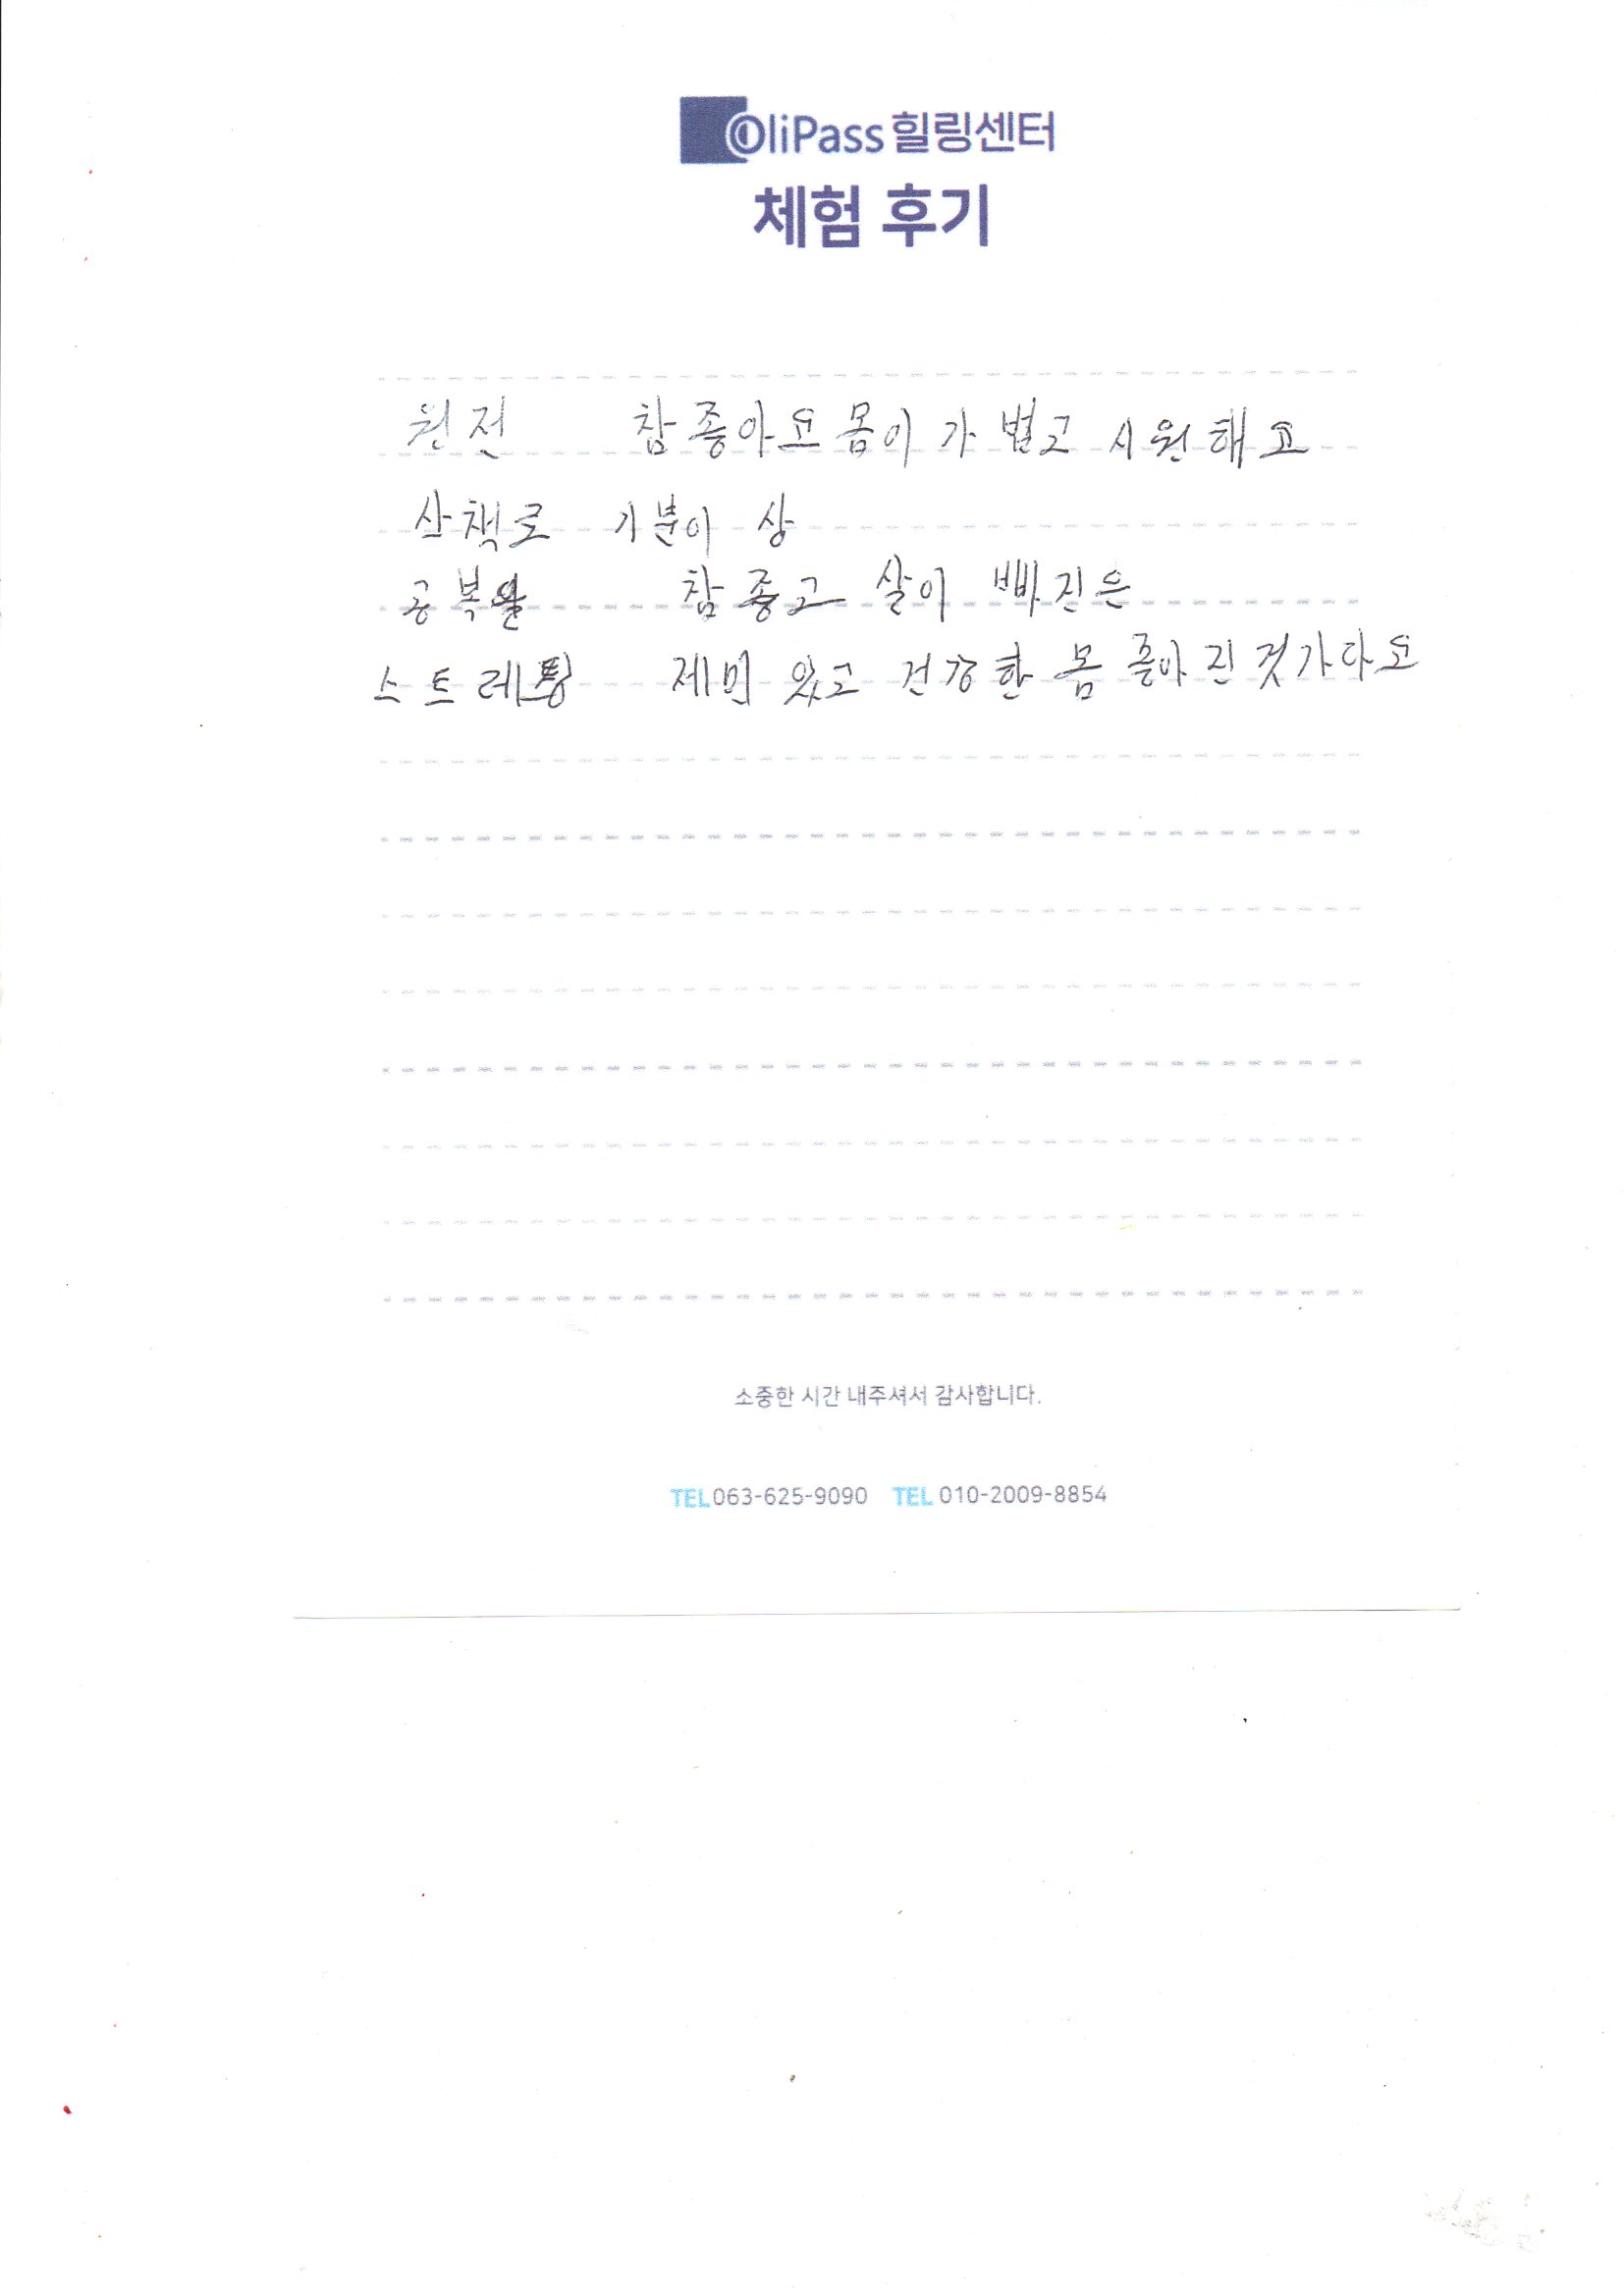 OliPass 힐링센터
체험 후기
원전 참좋아요 몸이 가볍고 시원해요
산책로 기분이 상
공복 참 좋고 살이 빠진은
스트레칭 제미 있고 건강한 몸 좋아진것가다요
소중한 시간 내주셔서 감사합니다.
TEL 063-625-9090 TEL 010-2009-8854